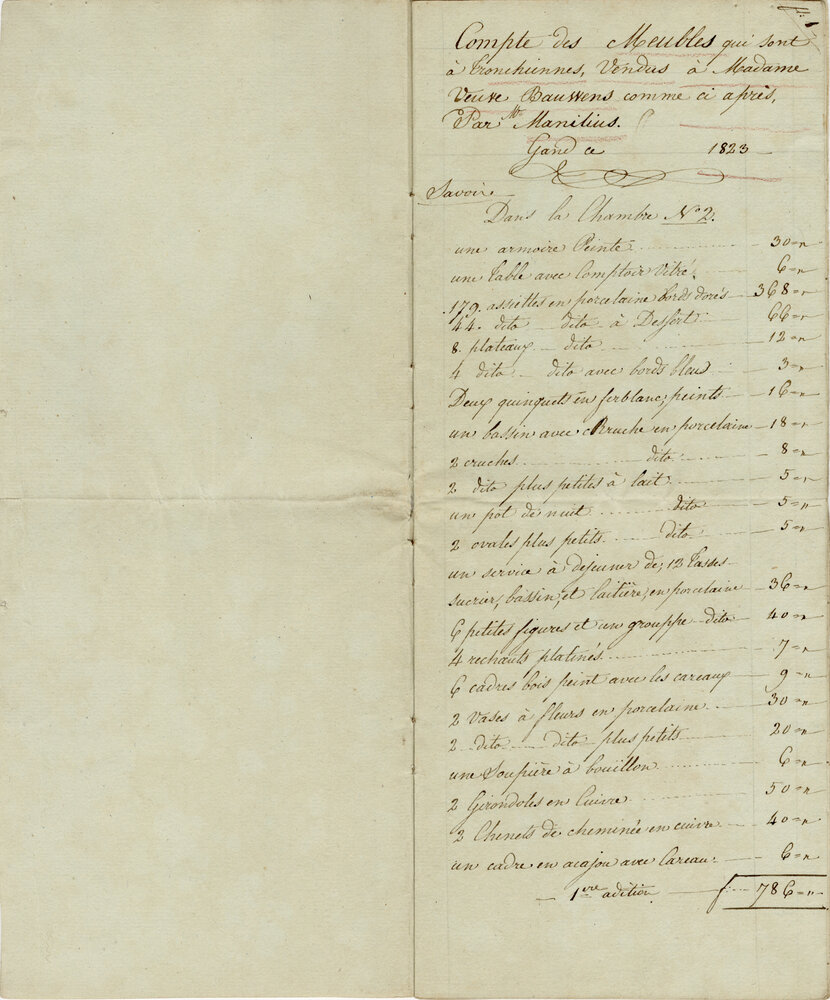 Compte des Meubles qui sont
à Tronchiennes, Vendus à Madame
Veuve Bauwens comme ci après,
Par Mr Manilius.
Gand ce 1823
Savoir
Dans la Chambre No 2.
une armoire Peinte 30 = "
une table avec Comptoir Vitré. 6 = "
179. assiettes en porcelaine bords dorés 368 = "
44. dito dito à Dessert 66 = "
8. plateaux dito 12 = "
4 dito dito avec bords bleus 3 = "
Deux quinquets en ferblanc, peints 16 = "
un bassin avec Cruche en porcelaine 18 = "
2 cruches dito 8 = "
2 dito plus petites à lait 5 = "
un pot de nuit dito 5 = "
2 ovales plus petits dito 5 = "
un service à dejeuner de, 12 tasses
sucrier, bassin, et laitière, en porcelaine 36 = "
6 petites figures et un grouppe dito 40 = "
4 rechauts platinés 7 = "
6 cadres bois peint avec les careaux 9 = "
2 Vases à fleurs en porcelaine 30 = "
2 dito dito plus petits 20 = "
une Soupière à bouillon 6 = "
2 Girondoles en Cuivre 50 = "
2 Chenets de cheminée en cuivre 40 = "
un cadre en acajou avec Careau 6 = "
1re adition f 786 = "